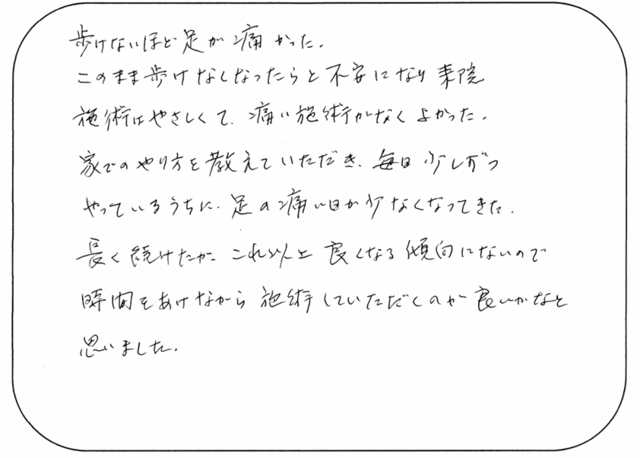 歩けないほど足が痛かった.
このまま歩けなくなったらと不安になり来院
施術はやさしくて、痛い施術がなくよかった.
家でのやり方を教えていただき、毎日少しずつ
やっているうちに、足の痛い日が少なくなってきた.
長く続けたが、これ以上良くなる傾向にないので
時間をあけながら施術していただくのが良いかなと
思いました.